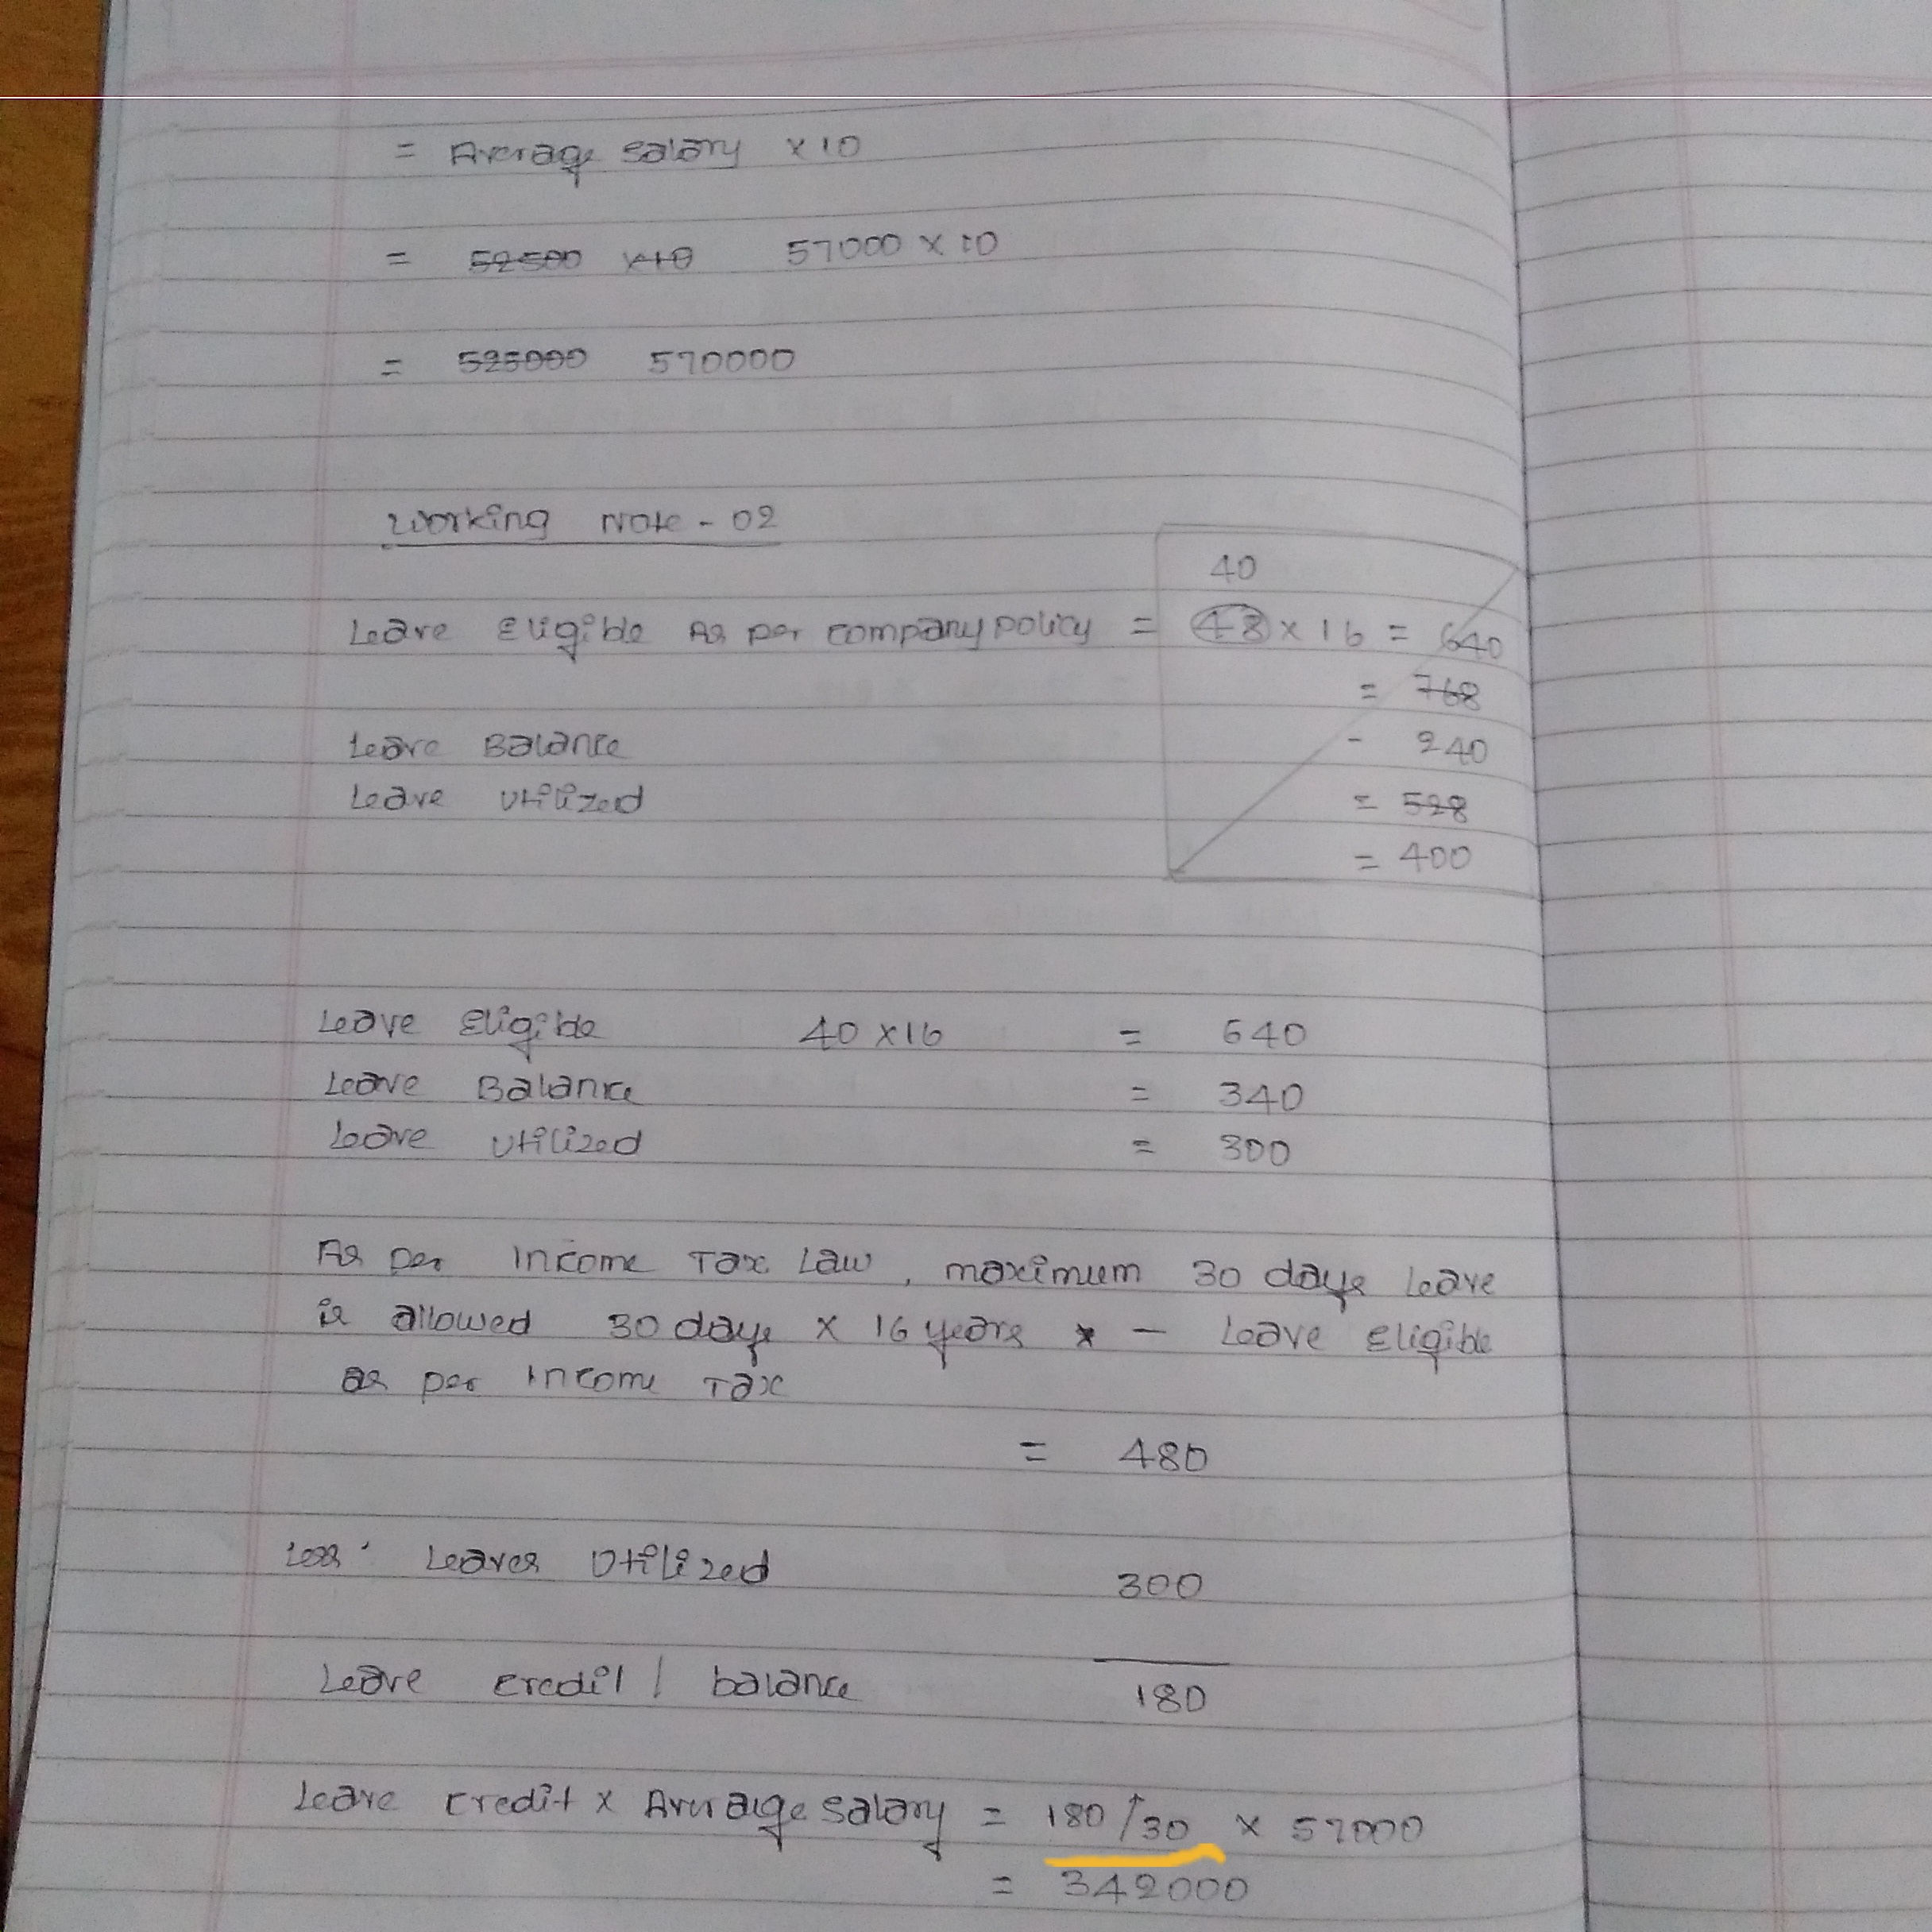 = Average salary x 10
= 52500 x10 57000 x 10
= 525000 570000
Working Note - 02
40
Leave Eligible As per company policy = 48 x 16 = 640
= 768
Leave Balance - 240
Leave Utilized = 528
= 400
Leave Eligible 40 x 16 = 640
Leave Balance = 340
Leave Utilized = 300
As per Income Tax Law, maximum 30 days leave
is allowed 30 days x 16 years * - Leave Eligible
as per Income Tax
= 480
Less: Leaves Utilized 300
Leave Credit / balance 180
Leave Credit x Average salary = 180/30 x 57000
= 342000